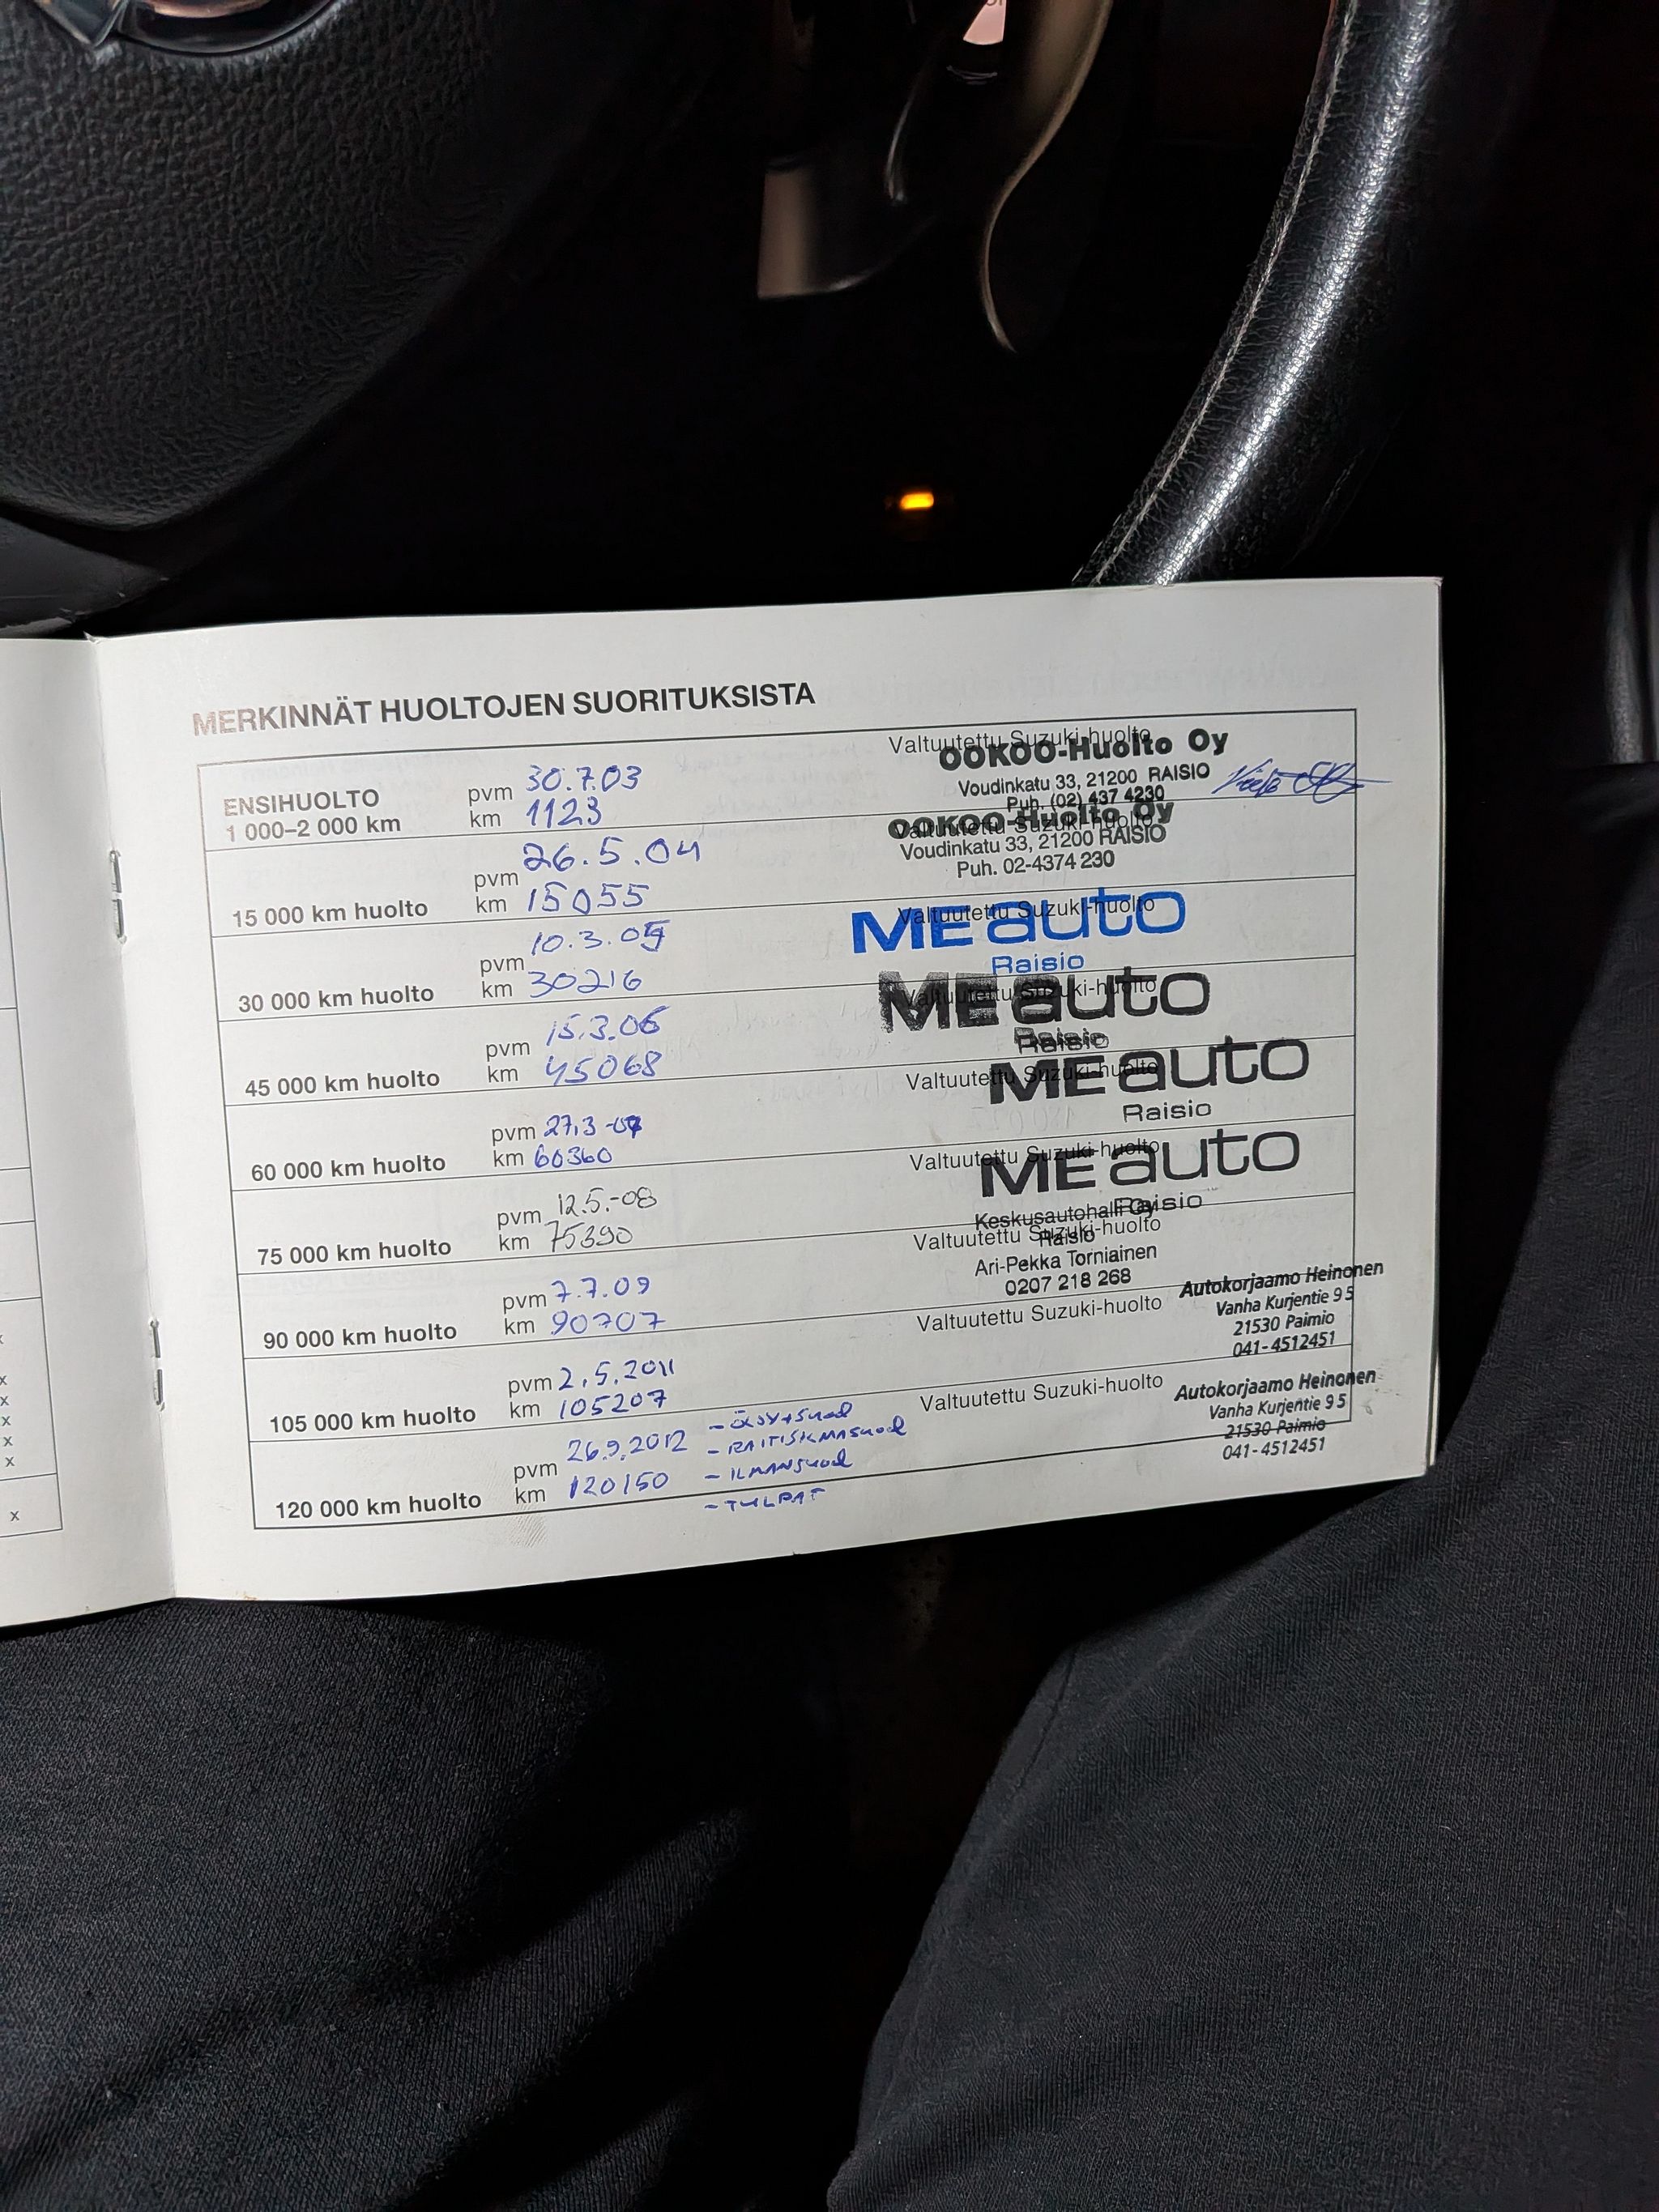 MERKINNÄT HUOLTOJEN SUORITUKSISTA
ENSIHUOLTO
1 000–2 000 km
pvm 30.7.03
km 1123
Valtuutettu Suzuki-huolto
OOKOO-Huolto Oy
Voudinkatu 33, 21200 RAISIO
Puh. (02) 437 4230
15 000 km huolto
pvm 26.5.04
km 15055
Valtuutettu Suzuki-huolto
OOKOO-Huolto Oy
Voudinkatu 33, 21200 RAISIO
Puh. 02-4374 230
30 000 km huolto
pvm 10.3.05
km 30216
Valtuutettu Suzuki-huolto
MEauto
Raisio
45 000 km huolto
pvm 15.3.06
km 45068
Valtuutettu Suzuki-huolto
MEauto
Raisio
60 000 km huolto
pvm 27.3-07
km 60360
Valtuutettu Suzuki-huolto
MEauto
Raisio
75 000 km huolto
pvm 12.5.-08
km 75390
Valtuutettu Suzuki-huolto
MEauto
Raisio
90 000 km huolto
pvm 7.7.09
km 90707
Valtuutettu Suzuki-huolto
Keskusautohalli Oy
Raisio
Ari-Pekka Torniainen
0207 218 268
105 000 km huolto
pvm 2.5.2011
km 105207
Valtuutettu Suzuki-huolto
Autokorjaamo Heinonen
Vanha Kurjentie 9 5
21530 Paimio
041-4512451
120 000 km huolto
pvm 26.9.2012
km 120150
- ÖLJY+Suod
- RAITISILMASuod
- ILMANSuod
- TULPAT
Valtuutettu Suzuki-huolto
Autokorjaamo Heinonen
Vanha Kurjentie 9 5
21530 Paimio
041-4512451
x
x
x
x
x
x